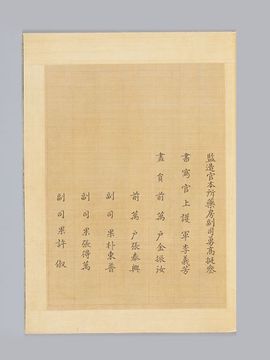 監造官本所藥房副司勇高挺參
書寫官上護軍李義芳
畫員前萬户金振汝
前萬户張泰興
副司果朴東普
副司果張得萬
副司果許俶